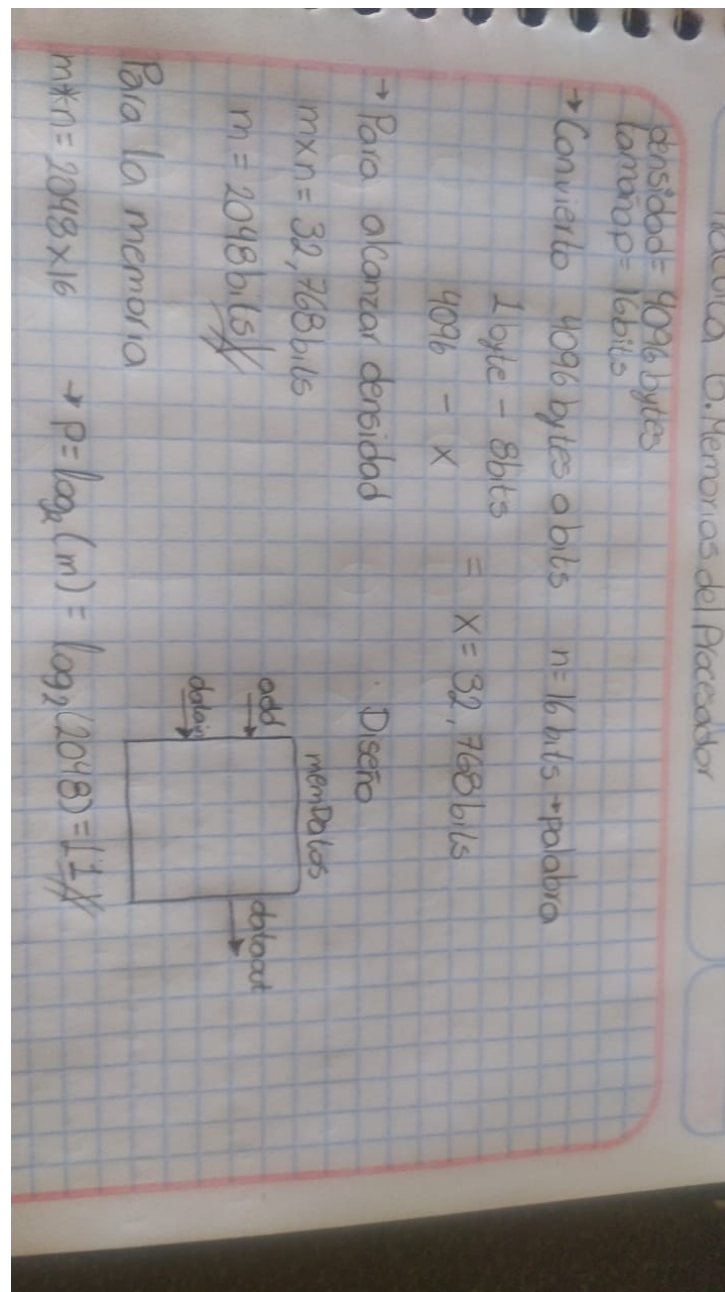 6. Memorias del Procesador
densidad = 4096 bytes
tamañop = 16bits
→ Convierto 4096 bytes a bits n = 16 bits → palabra
1 byte - 8bits
4096 - x = x = 32,768 bits
→ Para alcanzar densidad
m x n = 32,768 bits
m = 2048 bits
· Diseño
memDatos
add
datain
dataout
Para la memoria
m*n = 2048 x 16 → p = log₂(m) = log₂(2048) = 11